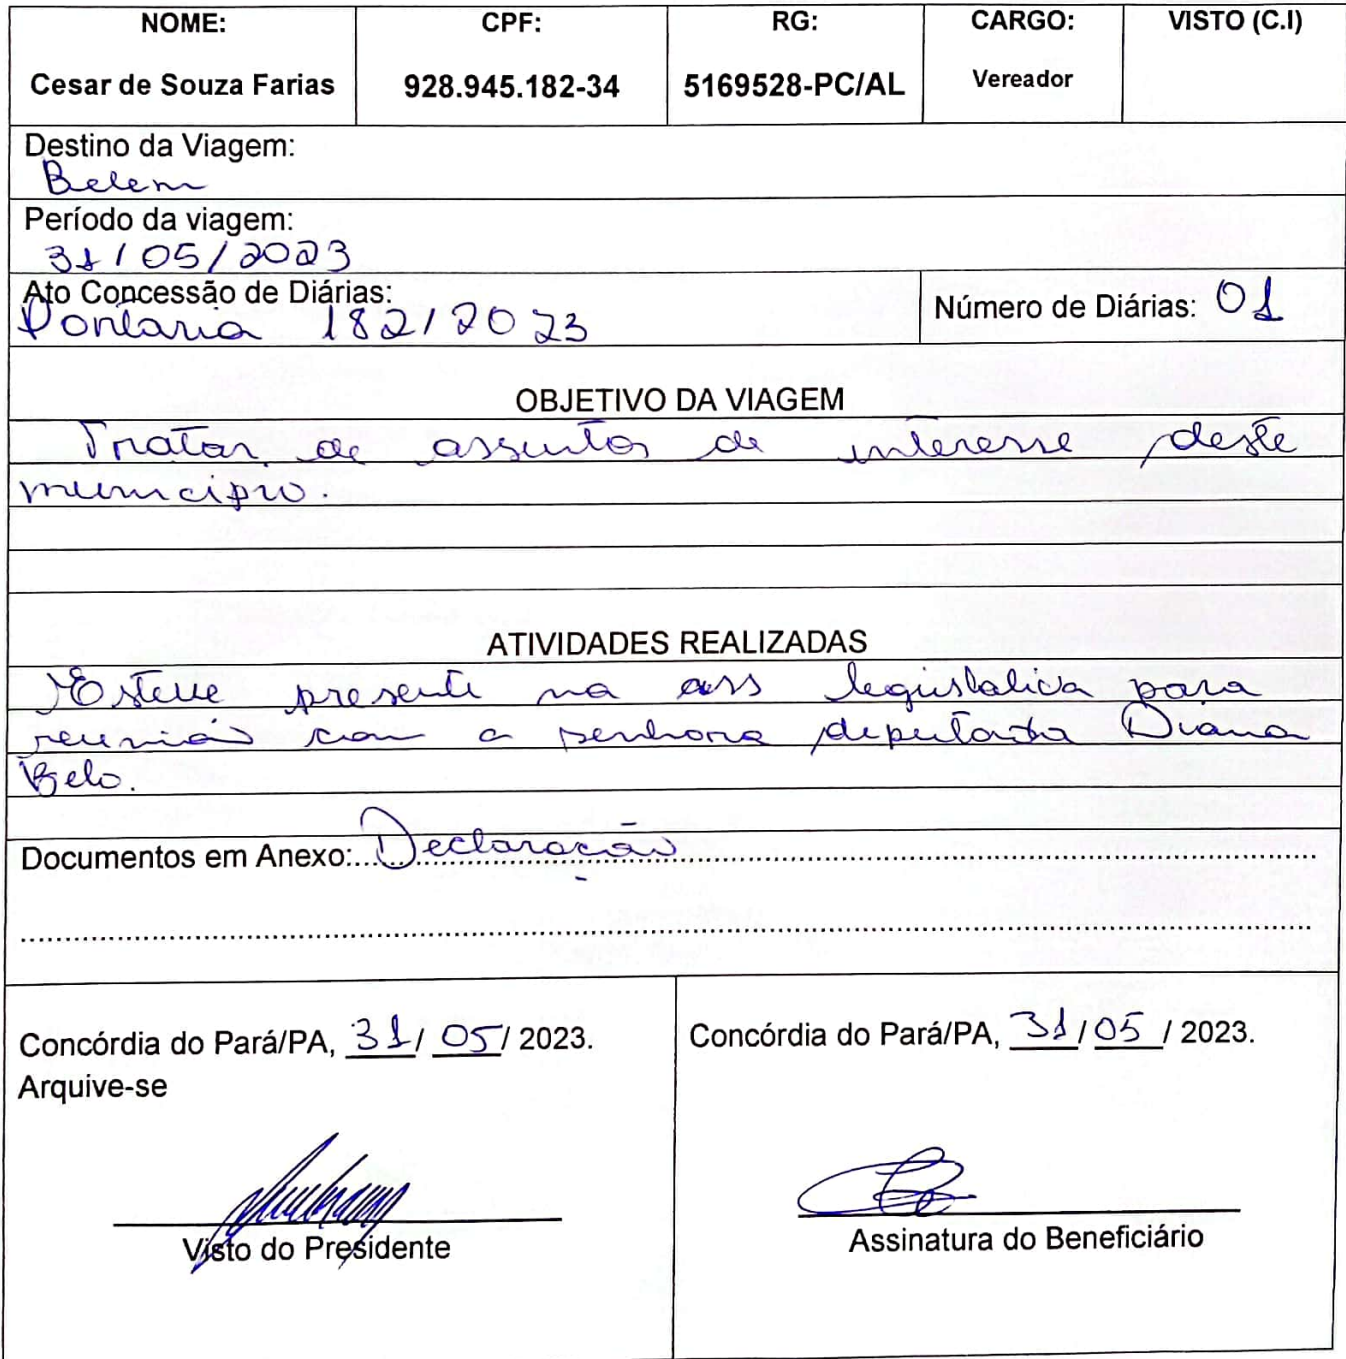 NOME: CPF: RG: CARGO: VISTO (C.I)
Cesar de Souza Farias 928.945.182-34 5169528-PC/AL Vereador
Destino da Viagem:
Belem
Período da viagem:
31/05/2023
Ato Concessão de Diárias:
Portaria 182/2023 Número de Diárias: 01
OBJETIVO DA VIAGEM
Tratar de assuntos de interesse deste
municipio.
ATIVIDADES REALIZADAS
Esteve presente na ass legislativa para
reunião com a senhora deputada Diana
Belo.
Documentos em Anexo: Declaração
Concórdia do Pará/PA, 31/05/2023. Concórdia do Pará/PA, 31/05/2023.
Arquive-se
Visto do Presidente Assinatura do Beneficiário